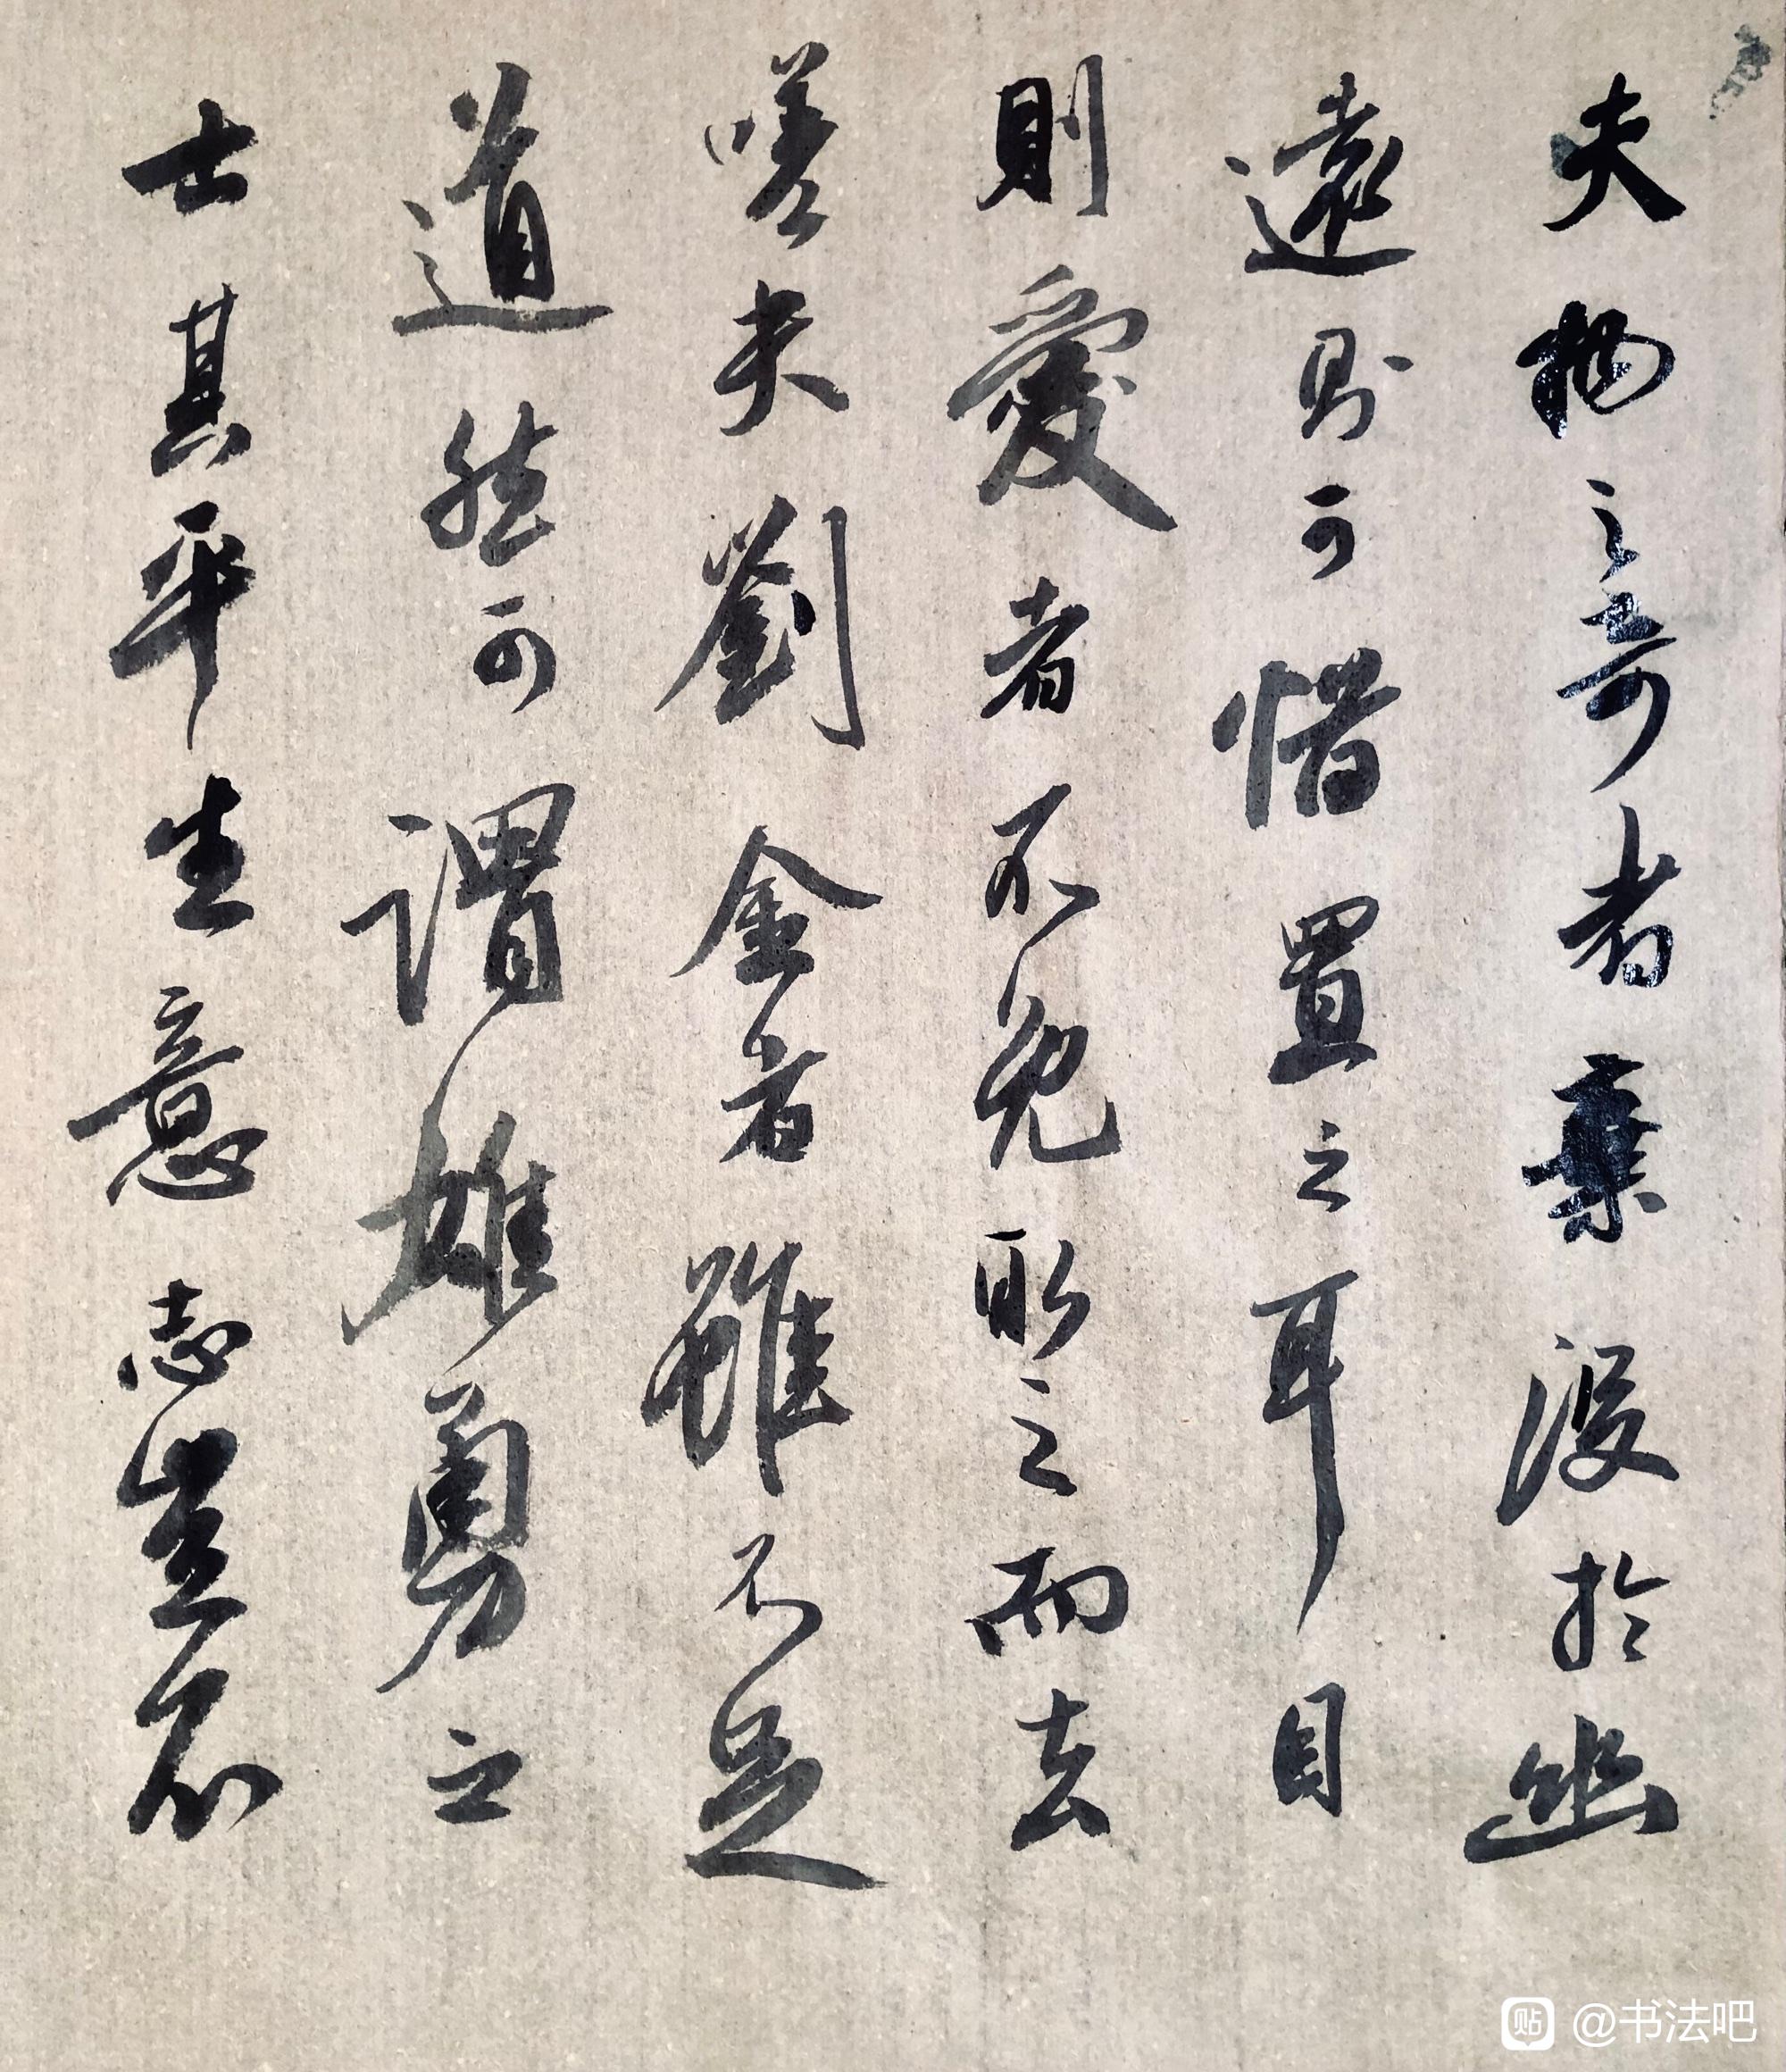 夫物之奇者棄沒於幽
遠則可惜置之耳目
則愛者不免取之而去
嗟夫劉金者雖不足
道然可謂雄勇之
士其平生意志豈不
@书法吧